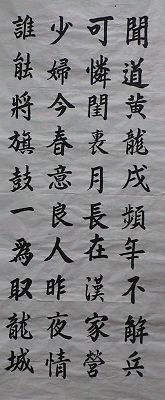 聞道黄龍戌頻年不解兵
可憐閨裏月長在漢家營
少婦今春意良人昨夜情
誰能將旗鼓一為取龍城